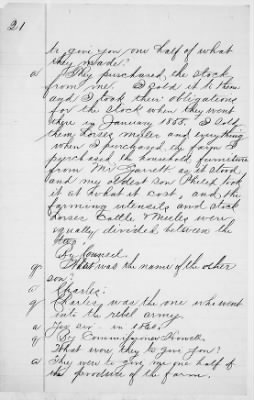 21
to give you one half of what
they made?
a They purchased the stock
from me. I sold it to them
and I took their obligations
for the stock when they went
there in January 1855. I sold
them horses, mules and everything
when I purchased the farm I
purchased the household furniture
from Mr Garrett as it stood
and my oldest son Philip took
it at what it cost, and the
farming utensils and stock
horses Cattle & Mules were
equally divided between the
By Counsel
q What was the name of the other
son?
a Charles.
q Charles, was the one who went
into the rebel army
a Yes sir - in
q By Commissioner Howell
What were they to give you?
a They were to give me one half of
the produce of the farm.